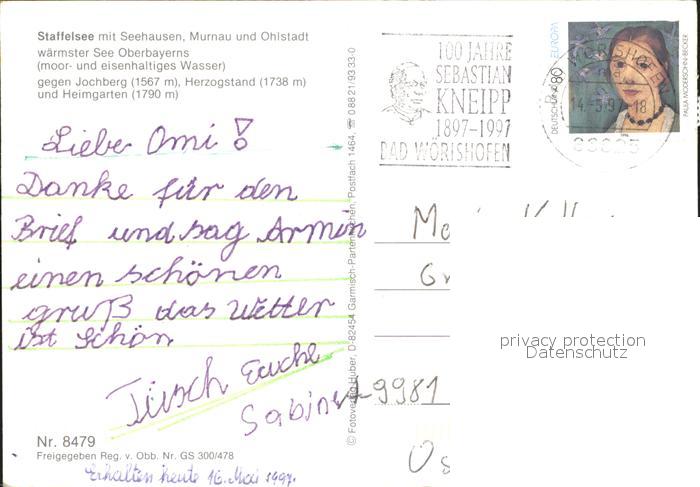 Staffelsee mit Seehausen, Murnau und Ohlstadt
wärmster See Oberbayerns
(moor- und eisenhaltiges Wasser)
gegen Jochberg (1567 m), Herzogstand (1738 m)
und Heimgarten (1790 m)
Liebe Omi!
Danke für den
Brief und sag Armin
einen schönen
gruß das Wetter
ist schön
Tüsch Euche
Sabine
Nr. 8479
Freigegeben Reg. v. Obb. Nr. GS 300/478
Erhalten heute 16. Mai 1997.
© Fotoverlag Huber, D-82454 Garmisch-Partenkirchen, Postfach 1464, ☎ 0 88 21/93 33-0
100 JAHRE
SEBASTIAN
KNEIPP
1897-1997
BAD WÖRISHOFEN
DEUTSCHLAND 80
EUROPA
PAULA MODERSOHN-BECKER
1996
14-5.97-18
86825
9981
privacy protection
Datenschutz